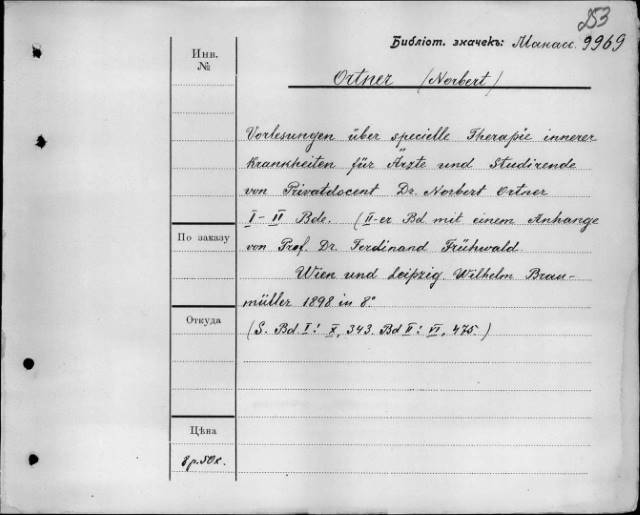 253
Библіот. значекъ: Манасс. 9969
Инв. №
Ortner (Norbert)
Vorlesungen über specielle Therapie innerer
Krankheiten für Ärzte und Studirende
von Privatdocent Dr. Norbert Ortner
I–II Bde. (II-er Bd mit einem Anhange
По заказу
von Prof. Dr. Ferdinand Frühwald.
Wien und Leipzig. Wilhelm Brau-
müller 1898 in 8°
Откуда
(S. Bd I: X, 343. Bd II: VI, 475.)
Цѣна
8 р. 50 к.